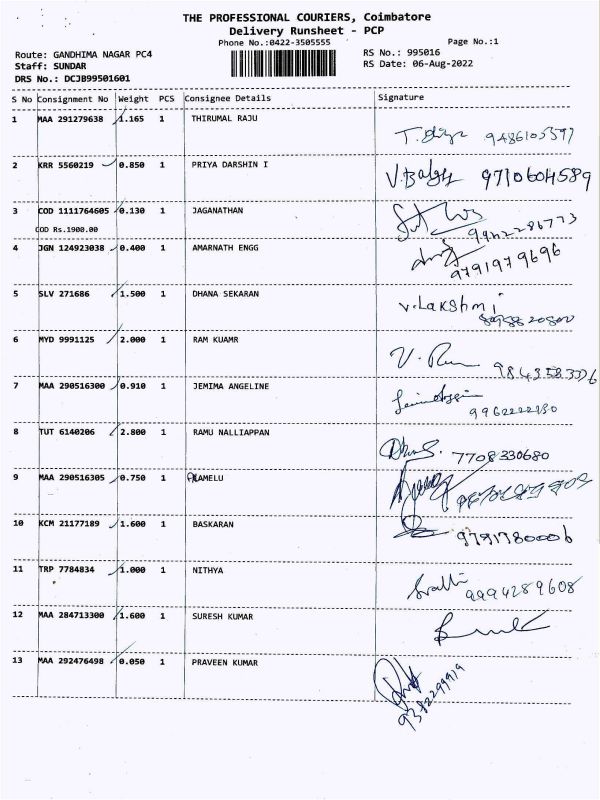 THE PROFESSIONAL COURIERS, Coimbatore
Delivery Runsheet - PCP
Phone No.:0422-3505555 Page No.:1
Route: GANDHIMA NAGAR PC4 RS No.: 995016
Staff: SUNDAR RS Date: 06-Aug-2022
DRS No.: DCJB99501601
S No Consignment No Weight PCS Consignee Details Signature
1 MAA 291279638 1.165 1 THIRUMAL RAJU
2 KRR 5560219 0.850 1 PRIYA DARSHIN I
9710604589
3 COD 1111764605 0.130 1 JAGANATHAN
COD Rs.1900.00
4 JGN 124923038 0.400 1 AMARNATH ENGG
9791979696
5 SLV 271686 1.500 1 DHANA SEKARAN
V.Lakshmi
6 MYD 9991125 2.000 1 RAM KUAMR
7 MAA 290516300 0.910 1 JEMIMA ANGELINE
8 TUT 6140206 2.800 1 RAMU NALLIAPPAN
7708330680
9 MAA 290516305 0.750 1 ALAMELU
10 KCM 21177189 1.600 1 BASKARAN
9791780006
11 TRP 7784834 1.000 1 NITHYA
9994289608
12 MAA 284713300 1.600 1 SURESH KUMAR
13 MAA 292476498 0.050 1 PRAVEEN KUMAR